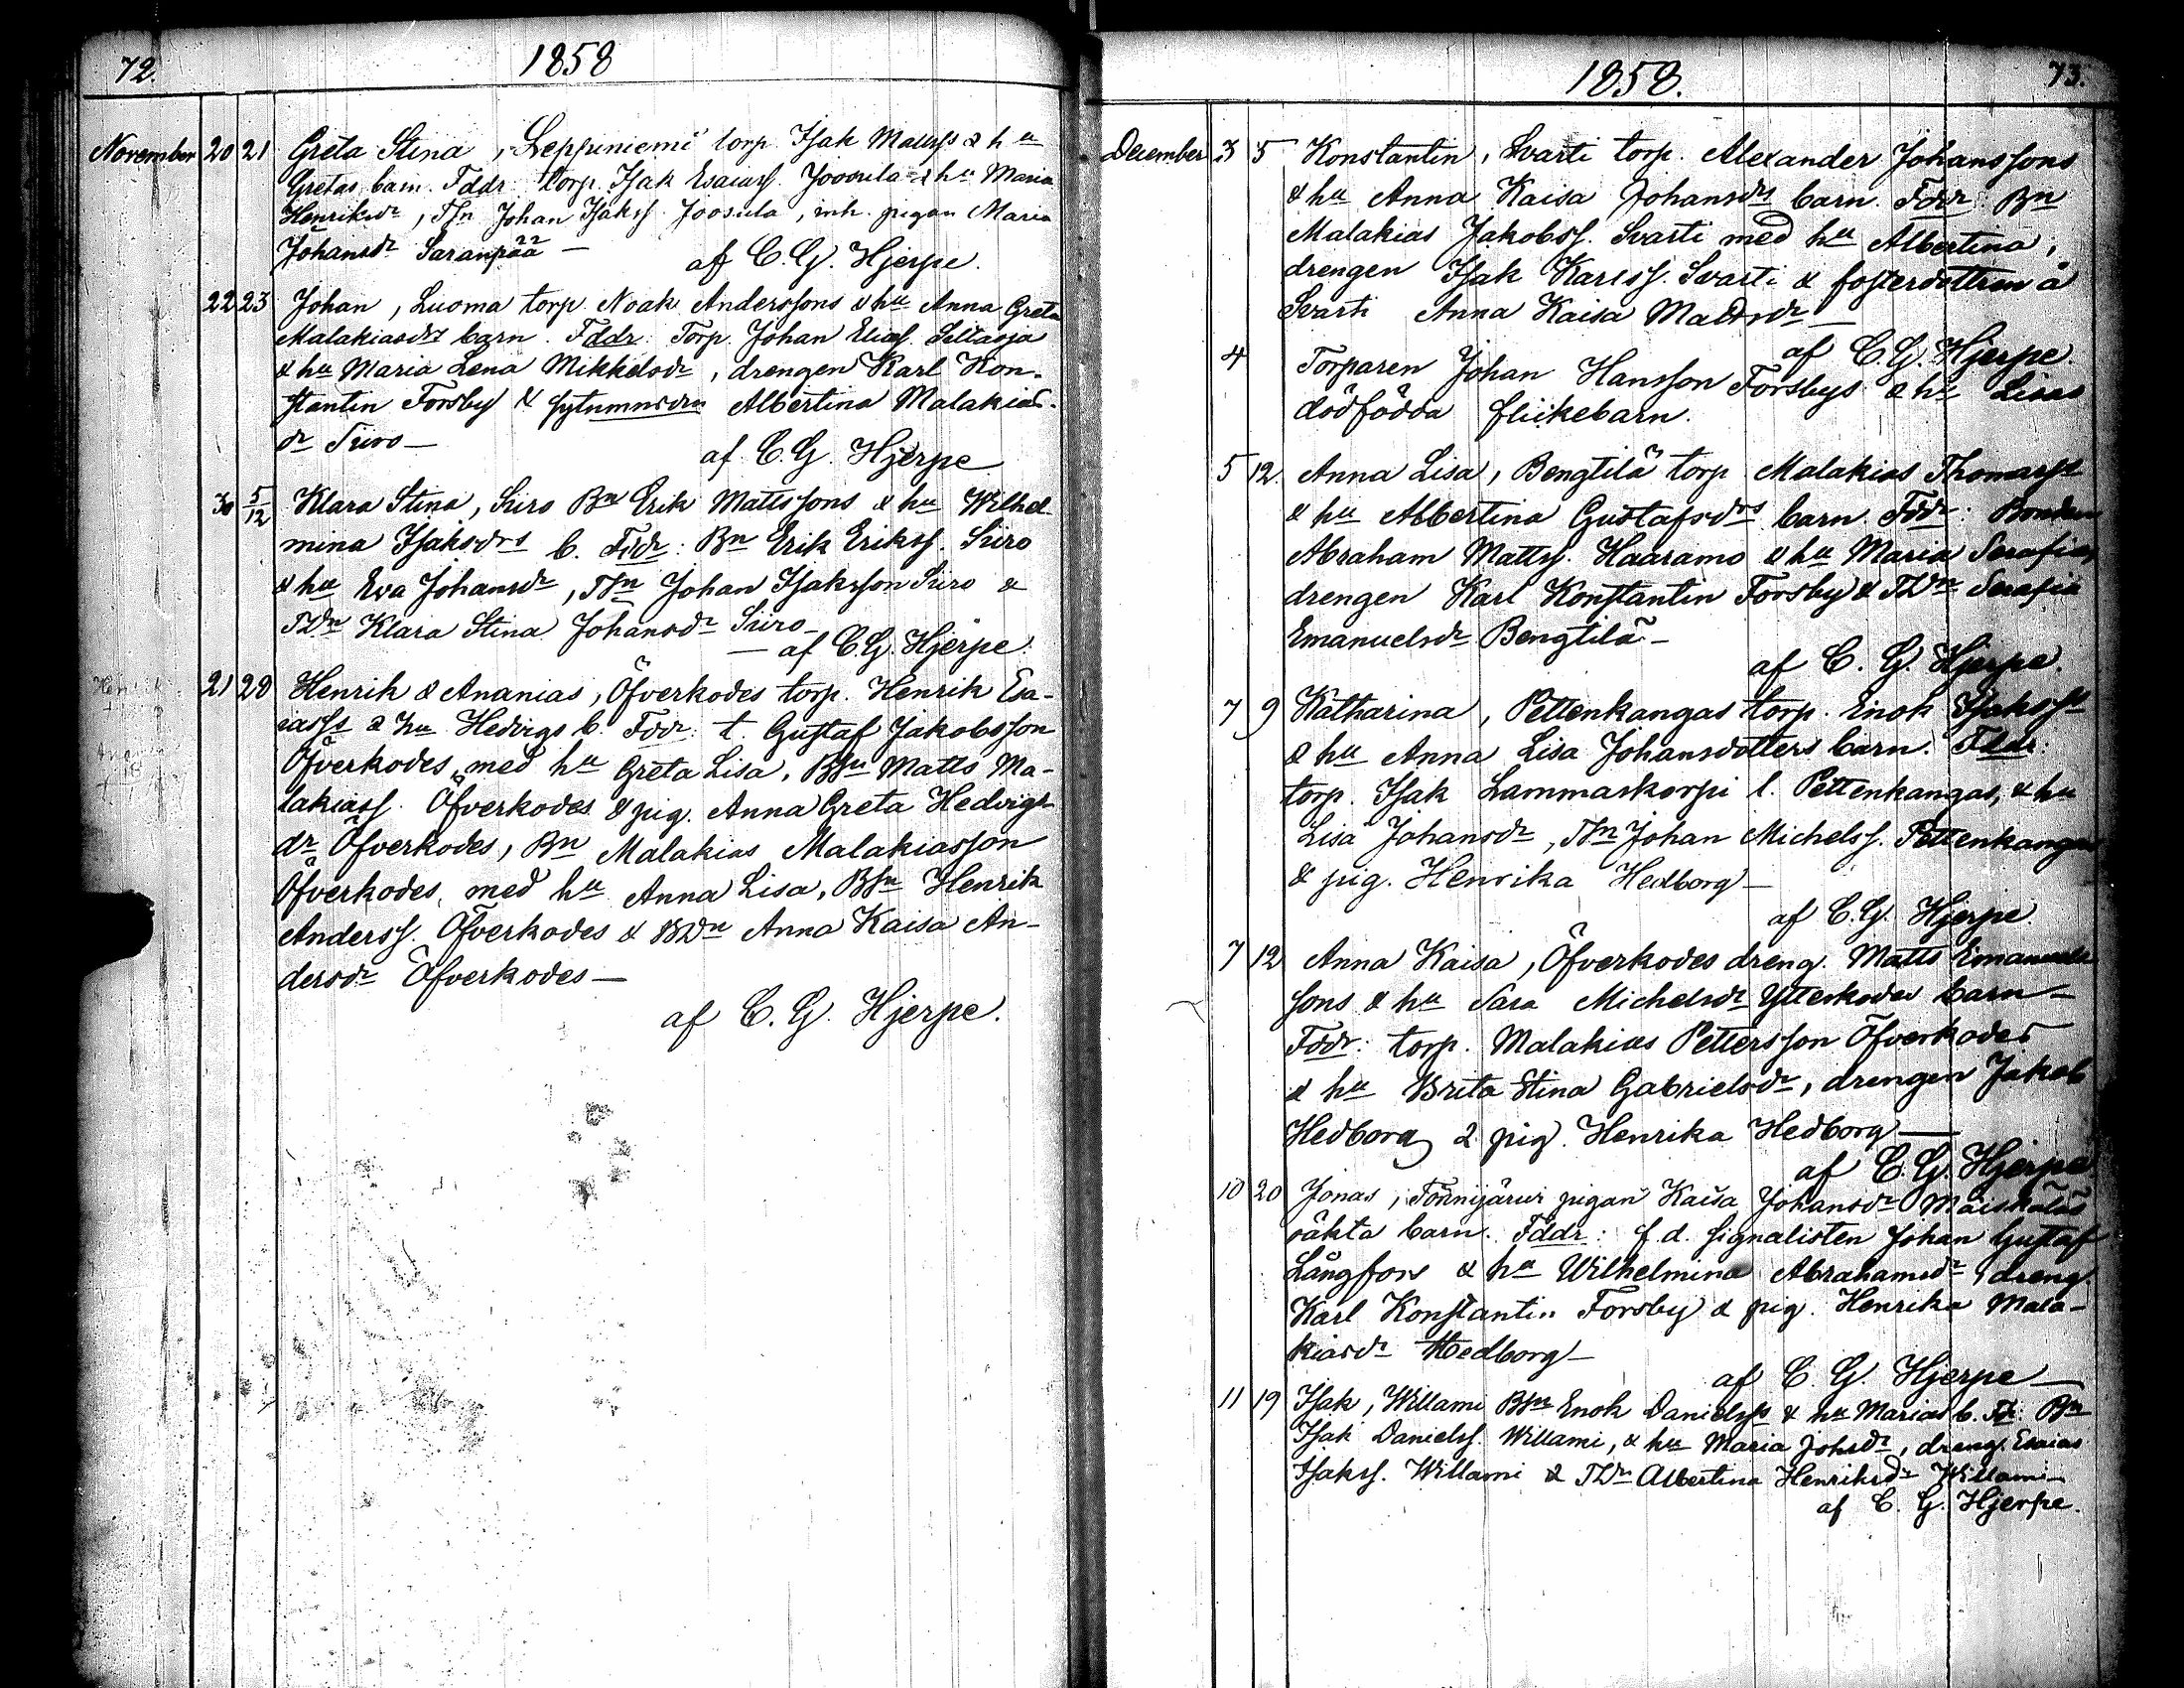 72.
1858
November 20 21 Greta Stina, Leppiniemi torp. Isak Matss & hu
Gretas barn. Fddr: torp. Isak Esaiass. Joosula & hu Maria
Henriksdr, TSn Johan Isakss. Joosula, inh. pigan Maria
Johansdr Saranpää —
af C. G. Hjerpe.
22 23 Johan, Luoma torp. Noak Anderssons & hu Anna Greta
Malakiasdrs barn. Fddr: Torp. Johan Eliass. Siltaoja
& hu Maria Lena Mikkelsdr, drengen Karl Kon-
stantin Forsby & Albertina Malakias-
dr Siiro —
af C. G. Hjerpe
30 5/12 Klara Stina, Siiro Bn Erik Mattssons & hu Wilhel-
mina Isaksdrs b. Fddr: Bn Erik Erikss. Siiro
& hu Eva Johansdr, TSn Johan Isaksson Siiro &
TDn Klara Stina Johansdr Siiro —
— af C. G. Hjerpe.
21 28 Henrik & Ananias, Öfverkodes torp. Henrik Esa-
iass & hu Hedvigs b. Fddr: t. Gustaf Jakobsson
Öfverkodes, med hu Greta Lisa, BSn Matts Ma-
lakiass. Öfverkodes & pig. Anna Greta Hedvigs-
dr Öfverkodes, Bn Malakias Malakiasson
Öfverkodes, med hu Anna Lisa, BSn Henrik
Anderss. Öfverkodes & BDn Anna Kaisa An-
dersdr Öfverkodes —
af C. G. Hjerpe.
1858.
73.
December 3 5 Konstantin, Svarti torp. Alexander Johanssons
& hu Anna Kaisa Johansdrs barn. Fddr: Bn
Malakias Jakobss. Svarti med hu Albertina,
drengen Isak Karlss. Svarti & fosterdottren å
Svarti Anna Kaisa Mattsdr —
af C. G. Hjerpe.
4 Torparen Johan Hansson Forsbys & hu Lisas
dödfödda flickebarn.
5 12. Anna Lisa, Bengtilä torp Malakias Thomass
& hu Albertina Gustafsdrs barn. Fddr: Bonden
Abraham Mattss. Haaramo & hu Maria Serafia,
drengen Karl Konstantin Forsby & TDn Serafia
Emanuelsdr Bengtilä —
af C. G. Hjerpe.
7 9 Katharina, Pettenkangas torp. Enok Isakss
& hu Anna Lisa Johansdotters barn. Fddr:
torp. Isak Lammaskorpi l. Pettenkangas, & hu
Lisa Johansdr, TSn Johan Michelss. Pettenkangas
& pig. Henrika Hedborg —
af C. G. Hjerpe.
7 12 Anna Kaisa, Öfverkodes dreng. Matts Emanuels
sons & hu Sara Michelsdr Ytterkodes barn —
Fddr: torp. Malakias Pettersson Öfverkodes
& hu Brita Stina Gabrielsdr, drengen Jakob
Hedborg & pig. Henrika Hedborg —
af C. G. Hjerpe
10 20 Jonas, Tönnijärvi pigan Kaisa Johansdr
oäkta barn. Fddr: f. d. signalisten Johan Gustaf
Långfors & hu Wilhelmina Abrahamsdr, dreng.
Karl Konstantin Forsby & pig. Henrika Mala-
kiasdr Hedborg —
af C. G. Hjerpe —
11 19 Isak, Willami BSn Enok Danielss & hu Marias b. Fdr: Bn
Isak Danielss. Willami, & hu Maria Johsdr, dreng. Esaias
Isakss. Willami & TDn Albertina Henriksdr Willami —
af C. G. Hjerpe.